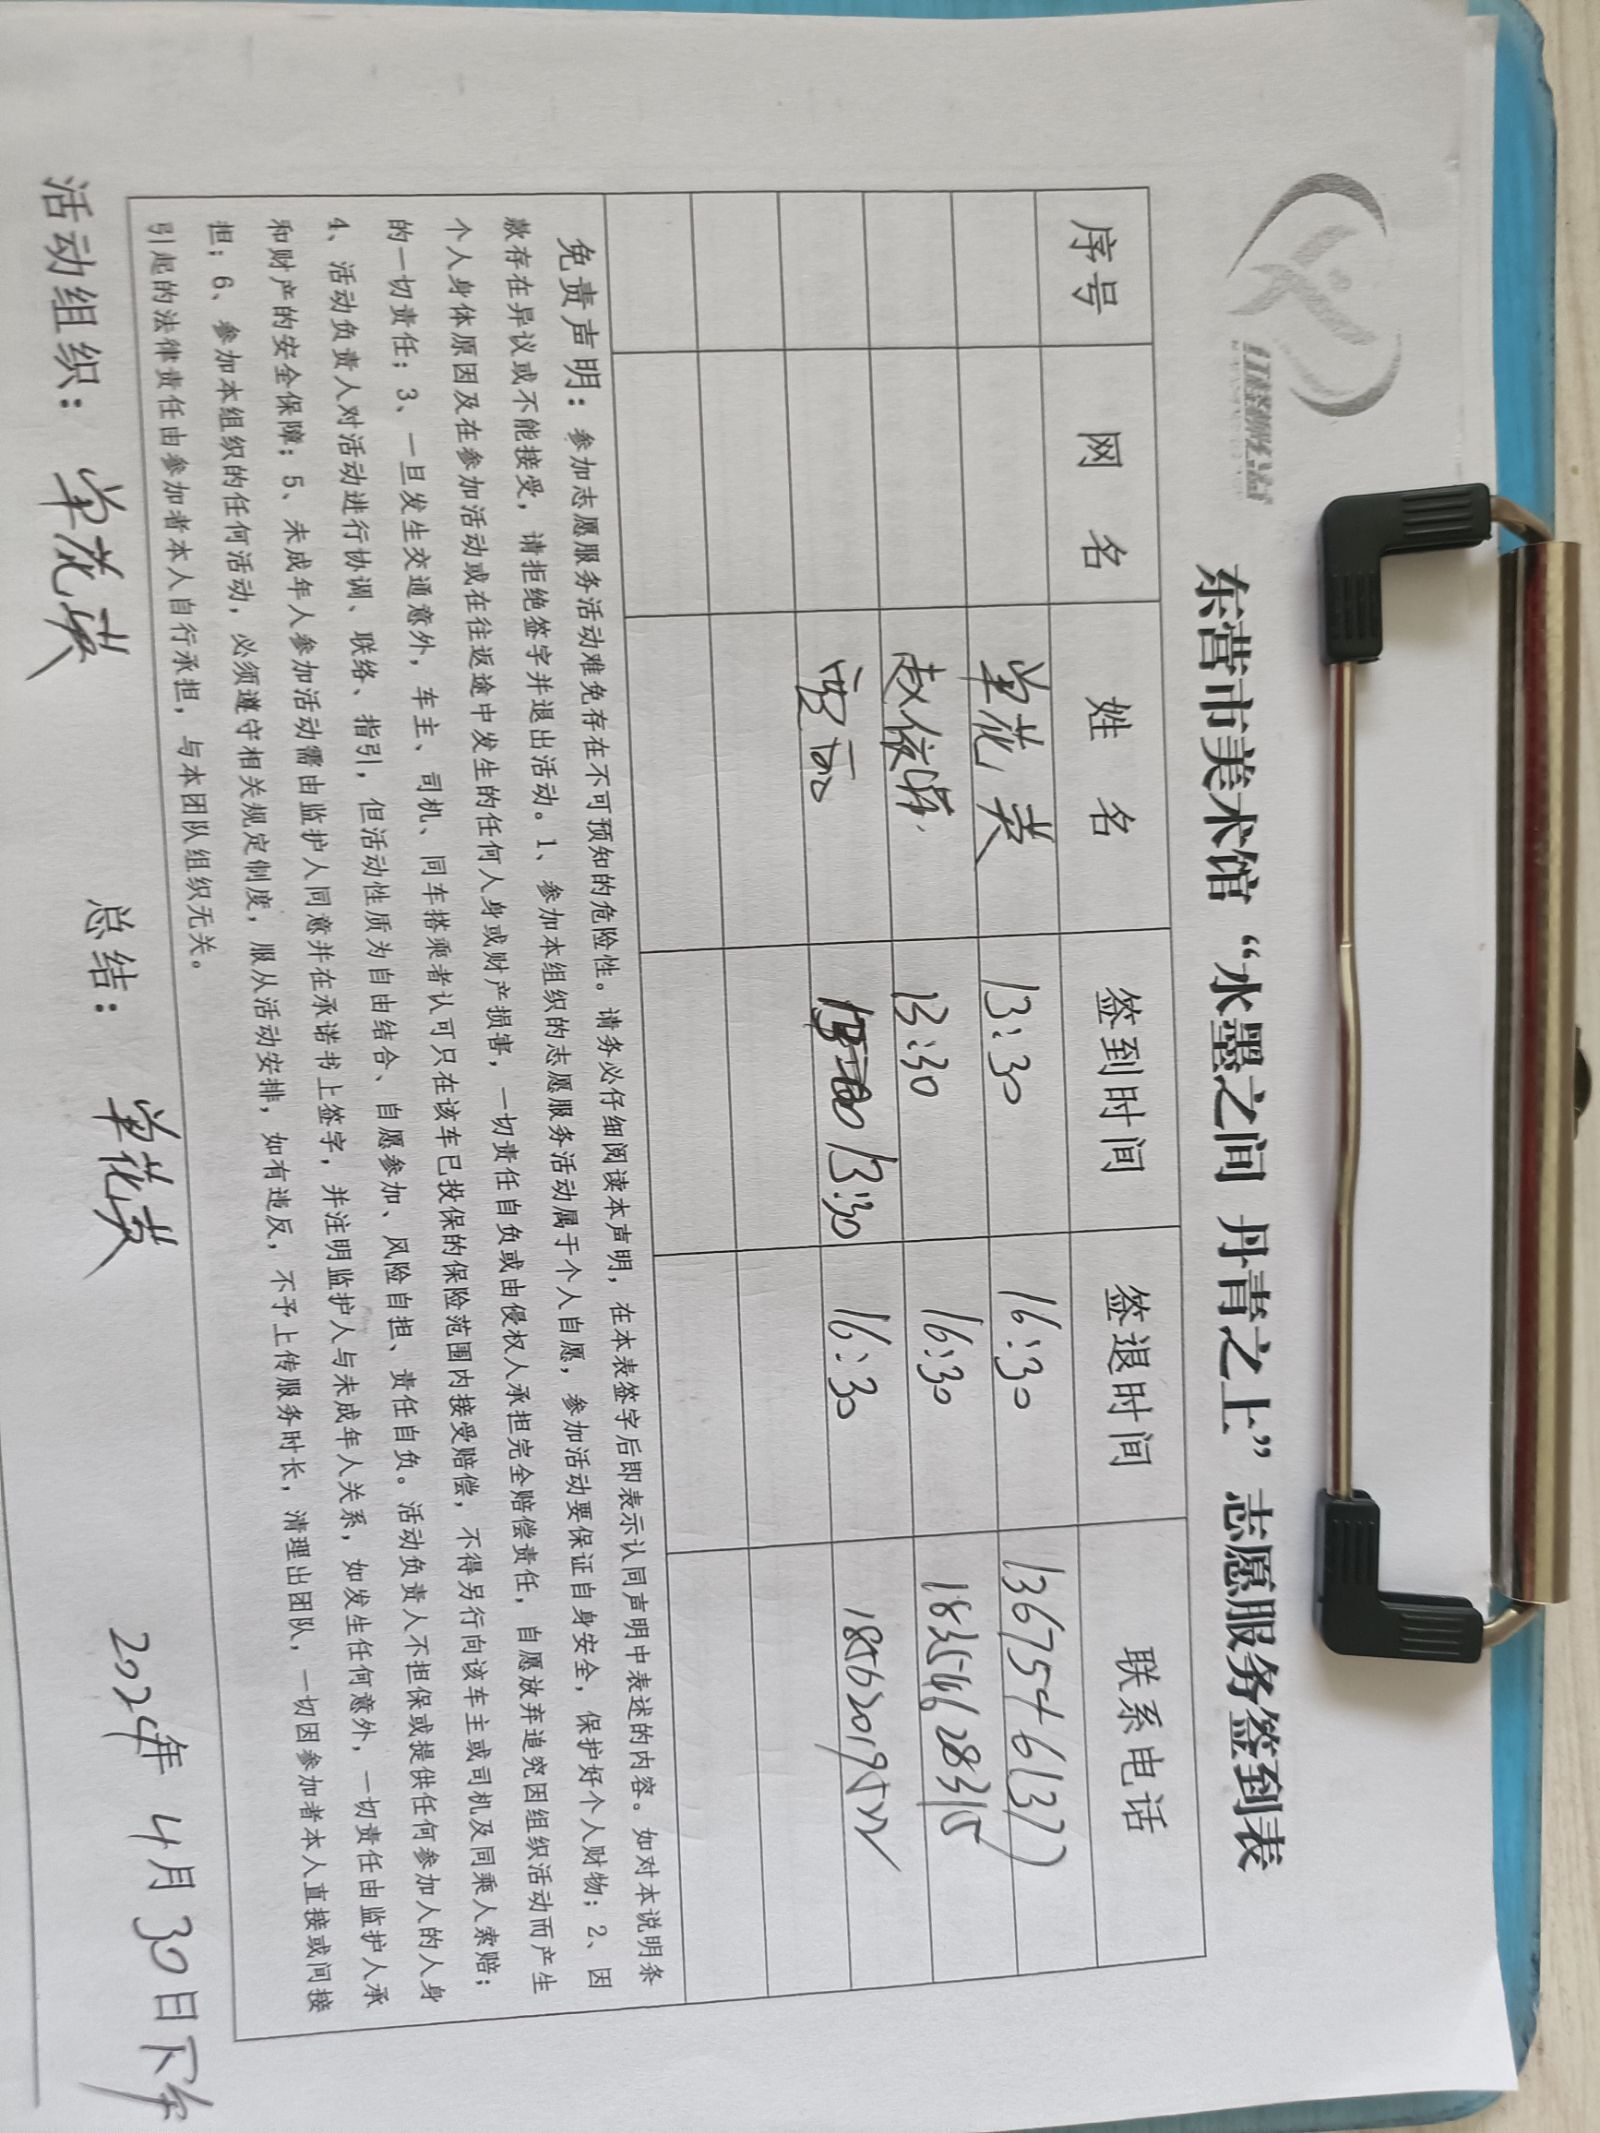 东营市美术馆“水墨之间 丹青之上”志愿服务签到表
序号 网 名 姓 名 签到时间 签退时间 联系电话
单花英 13:30 16:30 13675461377
赵依 13:30 16:30
13:30 16:30
免责声明：参加志愿服务活动难免存在不可预知的危险性。请务必仔细阅读本声明，在本表签字后即表示认同声明中表述的内容。如对本说明条
款存在异议或不能接受，请拒绝签字并退出活动。1、参加本组织的志愿服务活动属于个人自愿，参加活动要保证自身安全，保护好个人财物；2、因
个人身体原因及在参加活动或在往返途中发生的任何人身或财产损害，一切责任自负或由侵权人承担完全赔偿责任，自愿放弃追究因组织活动而产生
的一切责任；3、一旦发生交通意外，车主、司机、同车搭乘者认可只在该车已投保的保险范围内接受赔偿，不得另行向该车主或司机及同乘人索赔；
4、活动负责人对活动进行协调、联络、指引，但活动性质为自由结合、自愿参加、风险自担、责任自负。活动负责人不担保或提供任何参加人的人身
和财产的安全保障；5、未成年人参加活动需由监护人同意并在承诺书上签字，并注明监护人与未成年人关系，如发生任何意外，一切责任由监护人承
担；6、参加本组织的任何活动，必须遵守相关规定制度，服从活动安排，如有违反，不予上传服务时长，清理出团队，一切因参加者本人直接或间接
引起的法律责任由参加者本人自行承担，与本团队组织无关。
活动组织：单花英 总结：单花英 2024年 4月 30日下午